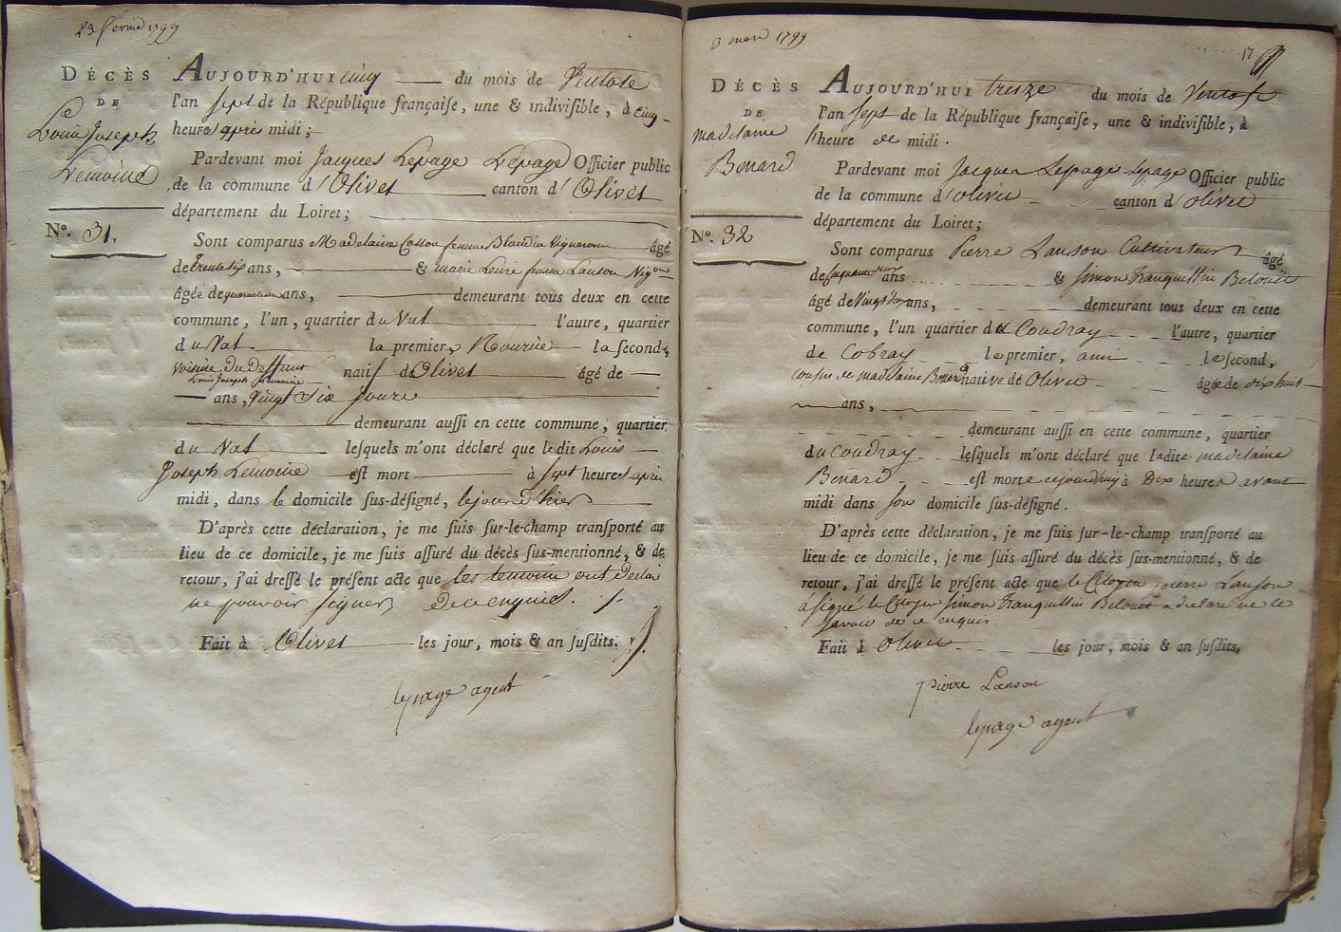 23 février 1799
DÉCÈS
DE
Louis Joseph
Lemoine
Nº. 31.
AUJOURD'HUI cinq du mois de Ventose
l'an sept de la République françaiſe, une & indiviſible, à cinq
heures après midi;
Pardevant moi Jacques Lepage Lepage Officier public
de la commune d'Olivet canton d'Olivet
département du Loiret;
Sont comparus Madelaine Cosson femme Blandin Vigneron âgé
de trente six ans, & marie Loire femme Lanson Vigon
âgée de quarante ans, demeurant tous deux en cette
commune, l'un, quartier du Val l'autre, quartier
du Val la premiere, Nourice la seconde,
Voisine du Deffunt natif d'Olivet âgé de
Louis Joseph Lemoine
ans, Vingt Six jours
demeurant auſſi en cette commune, quartier
du Val leſquels m'ont déclaré que ledit Louis
Joseph Lemoine est mort à sept heures après
midi, dans le domicile ſus-déſigné, le jour d'hier
D'après cette déclaration, je me ſuis ſur-le-champ tranſporté au
lieu de ce domicile, je me ſuis aſſuré du décès ſus-mentionné, & de
retour, j'ai dreſſé le préſent acte que les temoins ont déclaré
ne pouvoir signer De ce enquis.
Fait à Olivet les jour, mois & an ſuſdits.
lepage agent
3 mars 1799
17
DÉCÈS
DE
Madelaine
Benard
Nº. 32
AUJOURD'HUI treize du mois de Ventose
l'an sept de la République françaiſe, une & indiviſible, à
l'heure de midi.
Pardevant moi Jacques Lepage Lepage Officier public
de la commune d'Olivet canton d'Olivet
département du Loiret;
Sont comparus Pierre Lanson Cultivateur âgé
de ans & Simon franquillin Belouet
âgé de Vingt ans, demeurant tous deux en cette
commune, l'un quartier du Coudray l'autre, quartier
de Cobray le premier, ami le second,
cousin de madelaine Benard native de Olivet âgée de dix huit
ans,
demeurant auſſi en cette commune, quartier
du Coudray leſquels m'ont déclaré que ladite madelaine
Benard est morte cejourdhuy à Dix heures avant
midi dans son domicile ſus-déſigné.
D'après cette déclaration, je me ſuis ſur-le-champ tranſporté au
lieu de ce domicile, je me ſuis aſſuré du décès ſus-mentionné, & de
retour, j'ai dreſſé le préſent acte que le Citoyen pierre Lanson
a signé le Citoyen Simon franquillin Belouet a declaré ne le
savoir de ce enquis
Fait à Olivet les jour, mois & an ſuſdits.
pierre Lanson
lepage agent